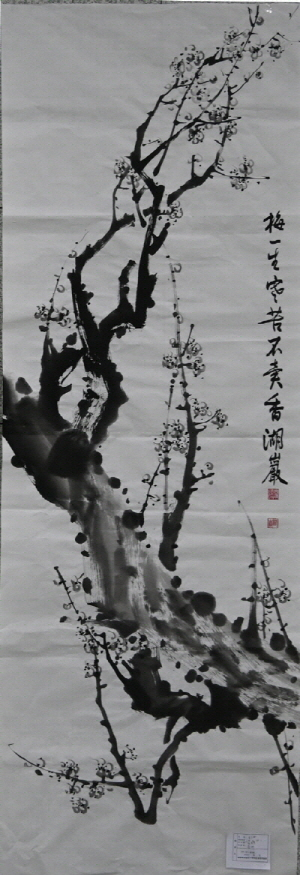 梅一生寒苦不賣香 湖巖